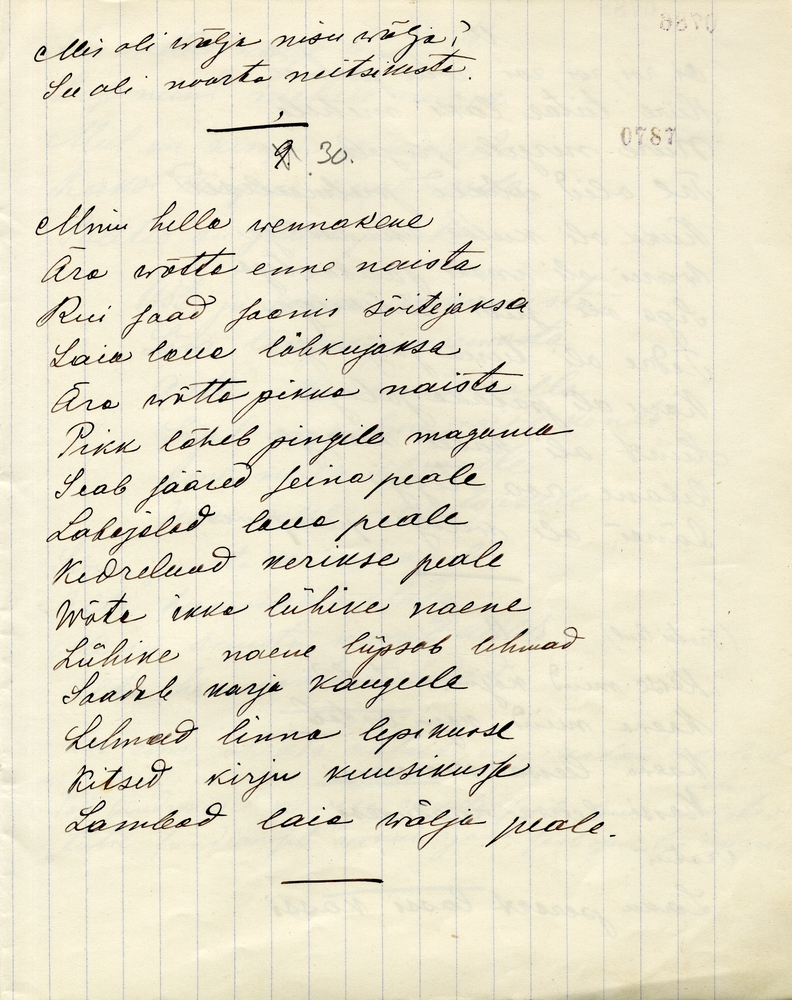 Mis oli wälja nisu wälja?
See oli noorta neitsikesta.
30.
0787
Minu hella wennakene
Ära wõtta enne naista
Kui saad saanis sõitejaksa
Laia laua lõhkujaksa
Ära wõtta pikka naista
Pikk läheb pingile magama
Seab sääred seina peale
Labajalad laua peale
Kedreluud kerikse peale
Wõta ikka lühike naene
Lühike naene lüpsab lehmad
Saadab karja kaugeele
Lehmad linna lepikusse
Kitsed kirju kuusikusse
Lambad laia wälja peale.